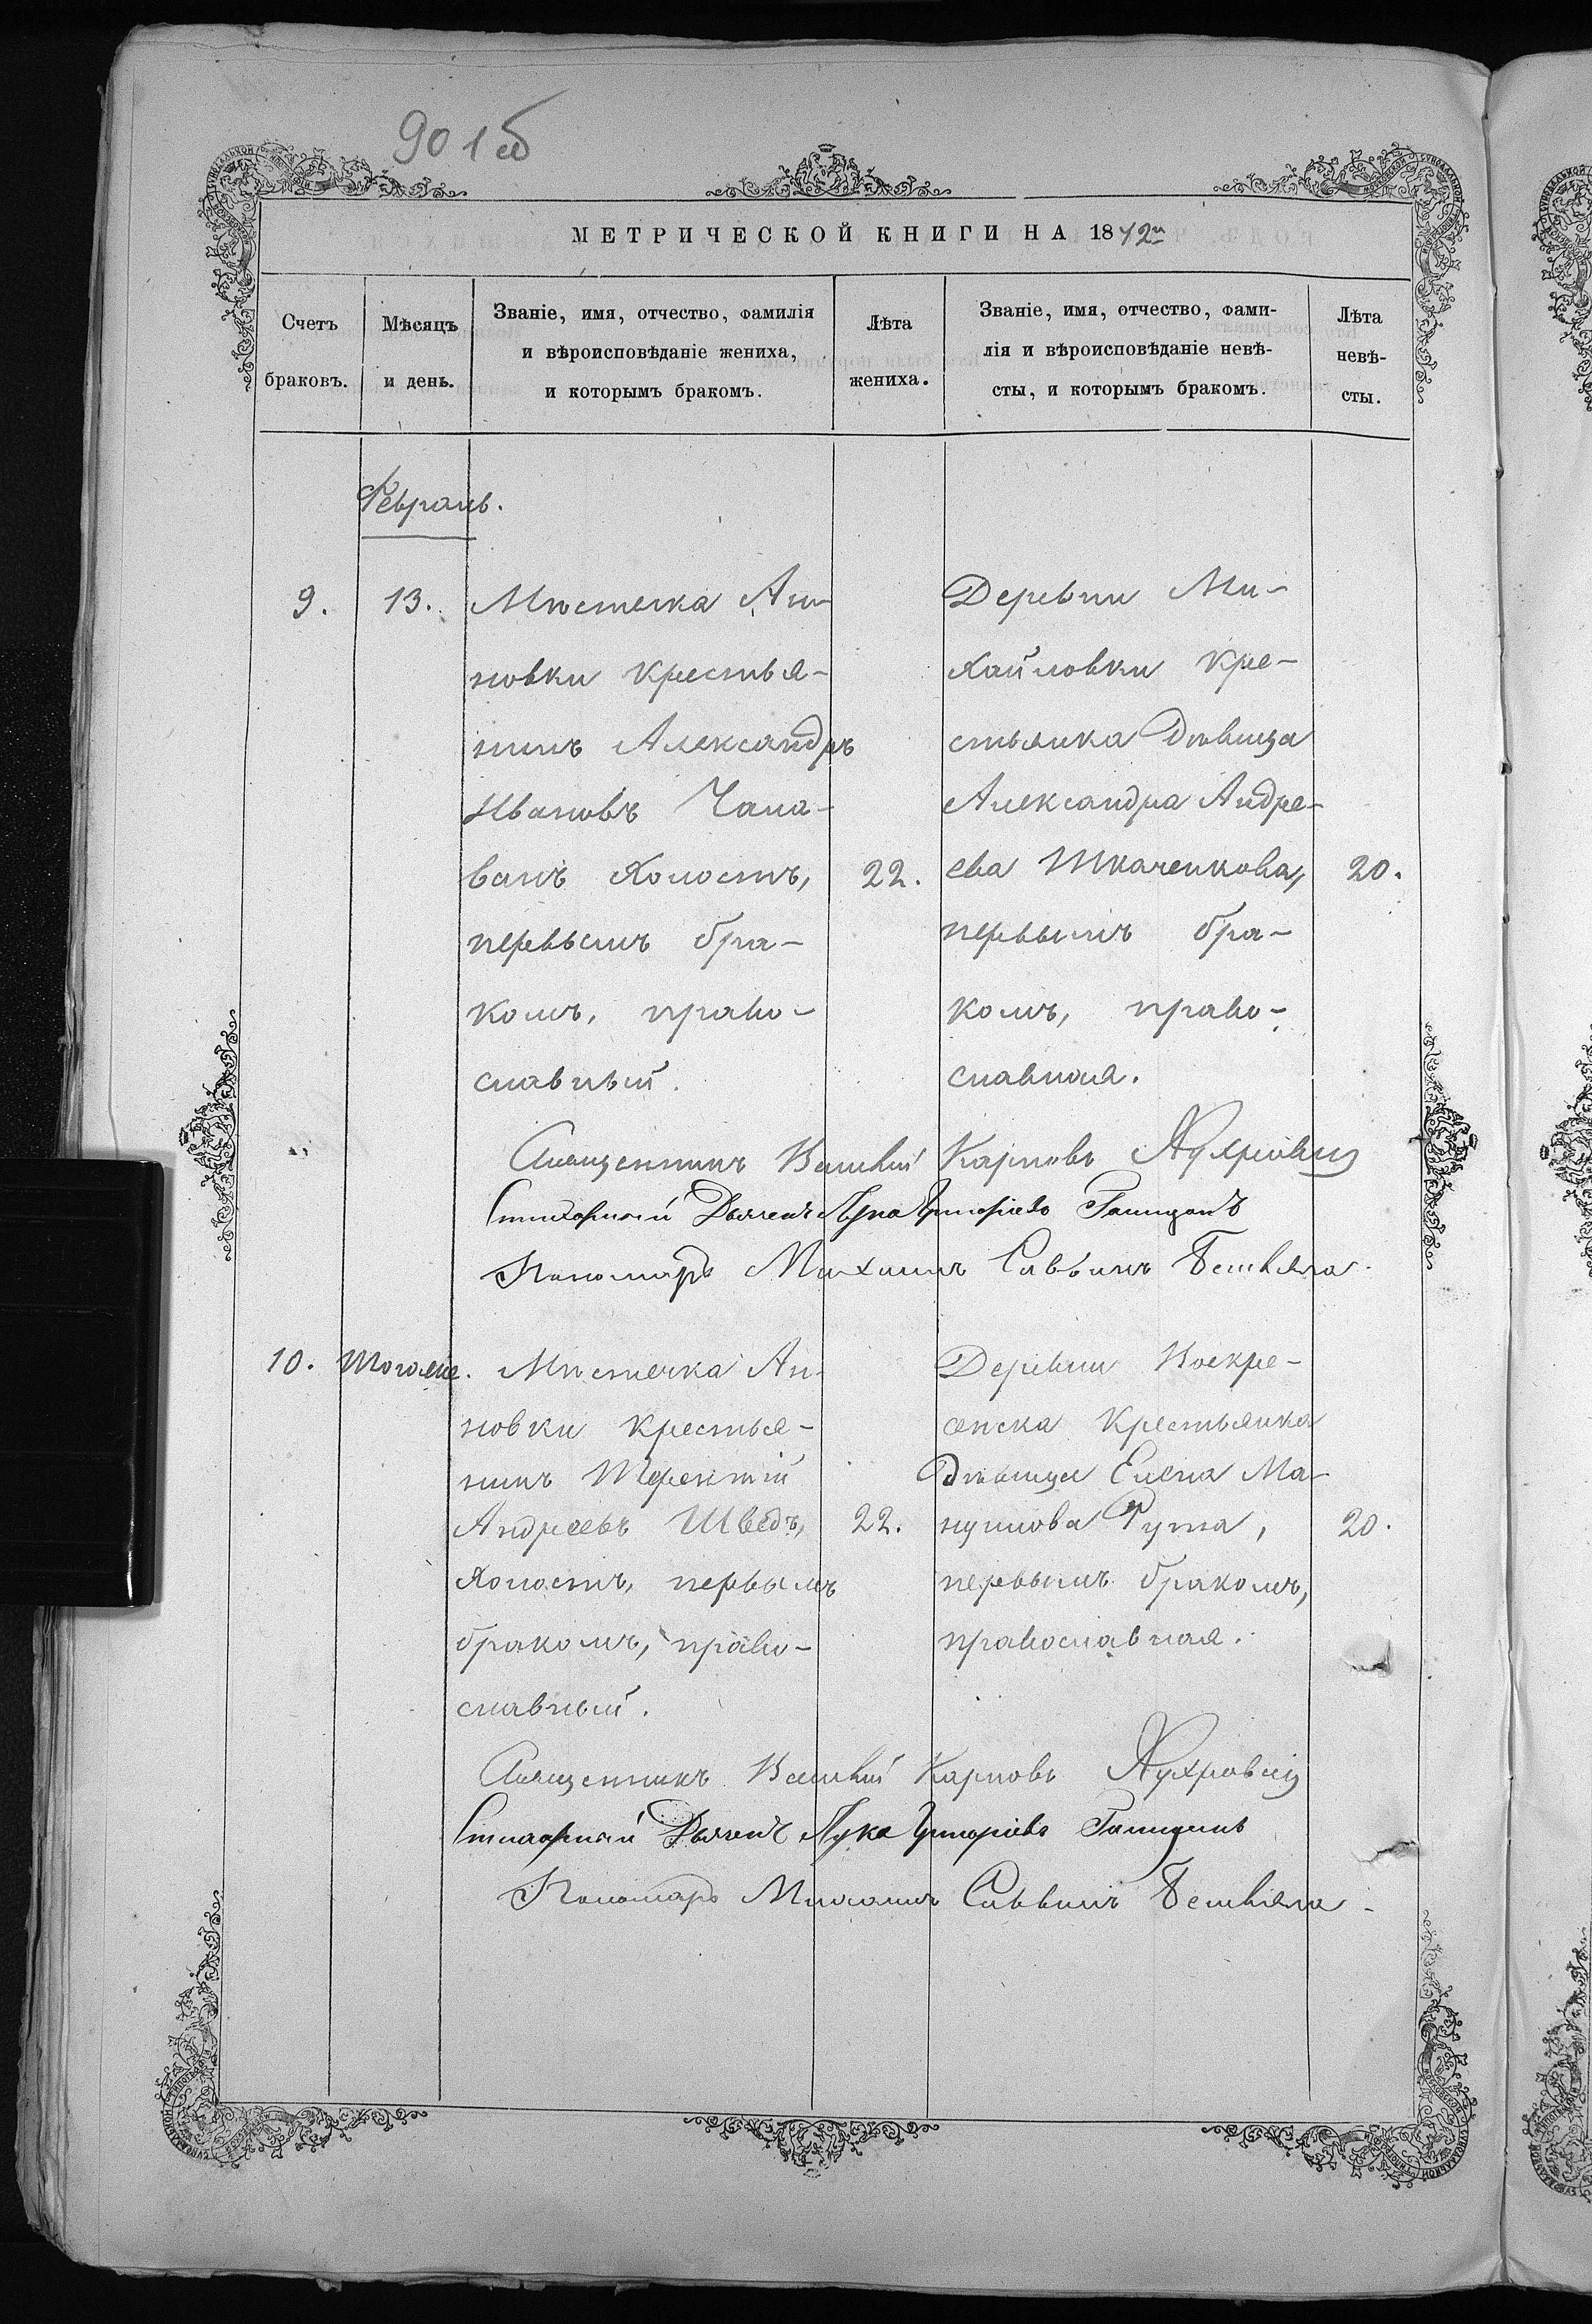 901 об
МЕТРИЧЕСКОЙ КНИГИ НА 1872й
Счетъ браковъ.
Мѣсяцъ и день.
Званіе, имя, отчество, фамилія
и вѣроисповѣданіе жениха,
и которымъ бракомъ.
Лѣта жениха.
Званіе, имя, отчество, фами-
лія и вѣроисповѣданіе невѣ-
сты, и которымъ бракомъ.
Лѣта невѣ-
сты.
Февраль.
9.
13.
Мѣстечка Ан-
новки крестья-
нинъ Александръ
Ивановъ Чала-
ванъ холостъ,
первымъ бра-
комъ, право-
славный.
22.
Деревни Ми-
хайловки кре-
стьянка Дѣвица
Александра Андре-
ева Ткаченкова,
первымъ бра-
комъ, право-
славная.
20.
Священникъ Василій Карповъ
Стихарный Дьячекъ Лука Григоріевъ
Пономарь Михаилъ Саввинъ
10.
Тогоже.
Мѣстечка Ан-
новки крестья-
нинъ Терентій
Андреевъ Шведъ,
холостъ, первымъ
бракомъ, право-
славный.
22.
Деревни Воскре-
сенска Крестьянка
Дѣвица Елена Ма-
нуилова Рута,
первымъ бракомъ,
православная.
20.
Священникъ Василій Карповъ
Стихарный Дьячекъ Лука Григоріевъ
Пономарь Михаилъ Саввинъ